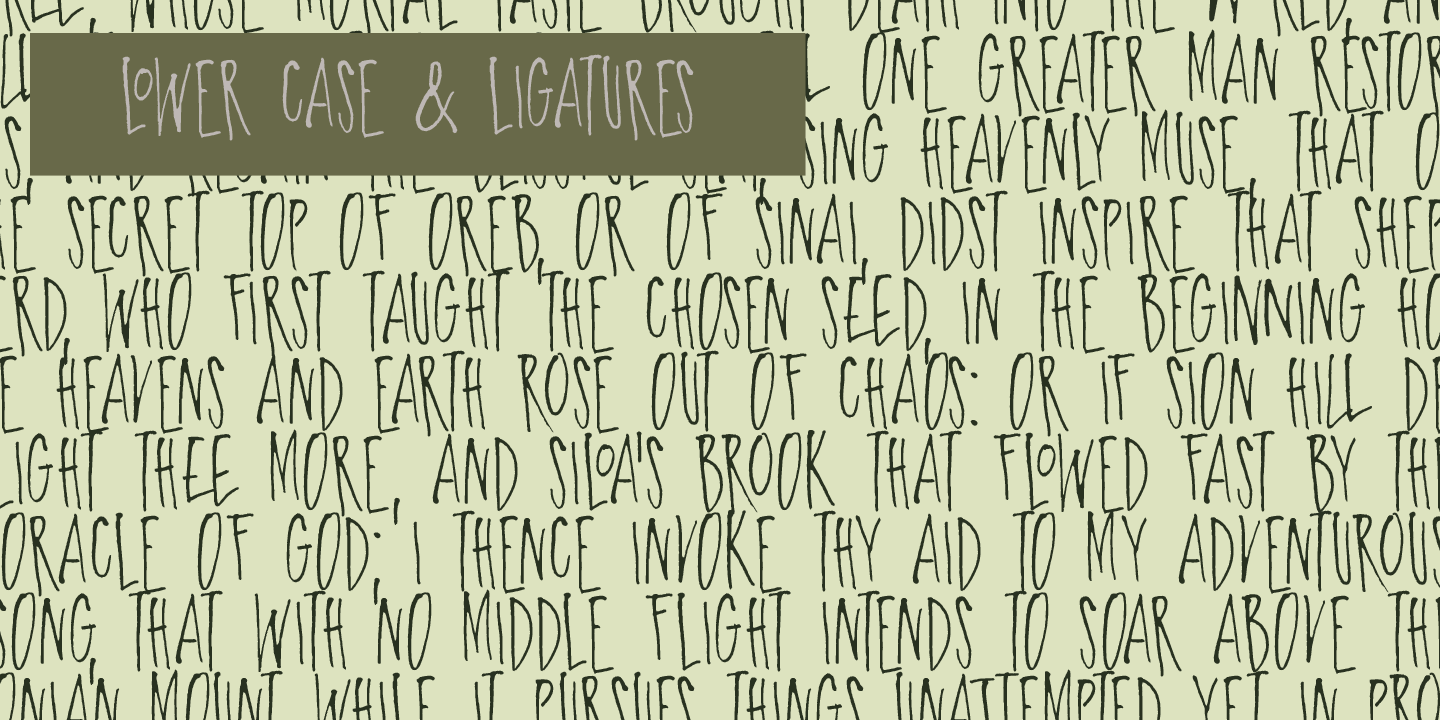 LOWER CASE & LIGATURES
WHOSE MORTAL TASTE BROUGHT DEATH INTO THE
ONE GREATER MAN RESTOR
S, AND REGAIN THE BLISSFUL SEAT, SING HEAVENLY MUSE THAT O
E SECRET TOP OF OREB, OR OF SINAI, DIDST INSPIRE THAT SHEP
RD, WHO FIRST TAUGHT THE CHOSEN SEED, IN THE BEGINNING HO
E HEAVENS AND EARTH ROSE OUT OF CHAOS: OR IF SION HILL DE
IGHT THEE MORE, AND SILOA'S BROOK THAT FLOWED FAST BY THE
ORACLE OF GOD; I THENCE INVOKE THY AID TO MY ADVENTUROUS
SONG THAT WITH NO MIDDLE FLIGHT INTENDS TO SOAR ABOVE TH
ONIAN MOUNT WHILE IT PURSUES THINGS UNATTEMPTED YET IN PRO